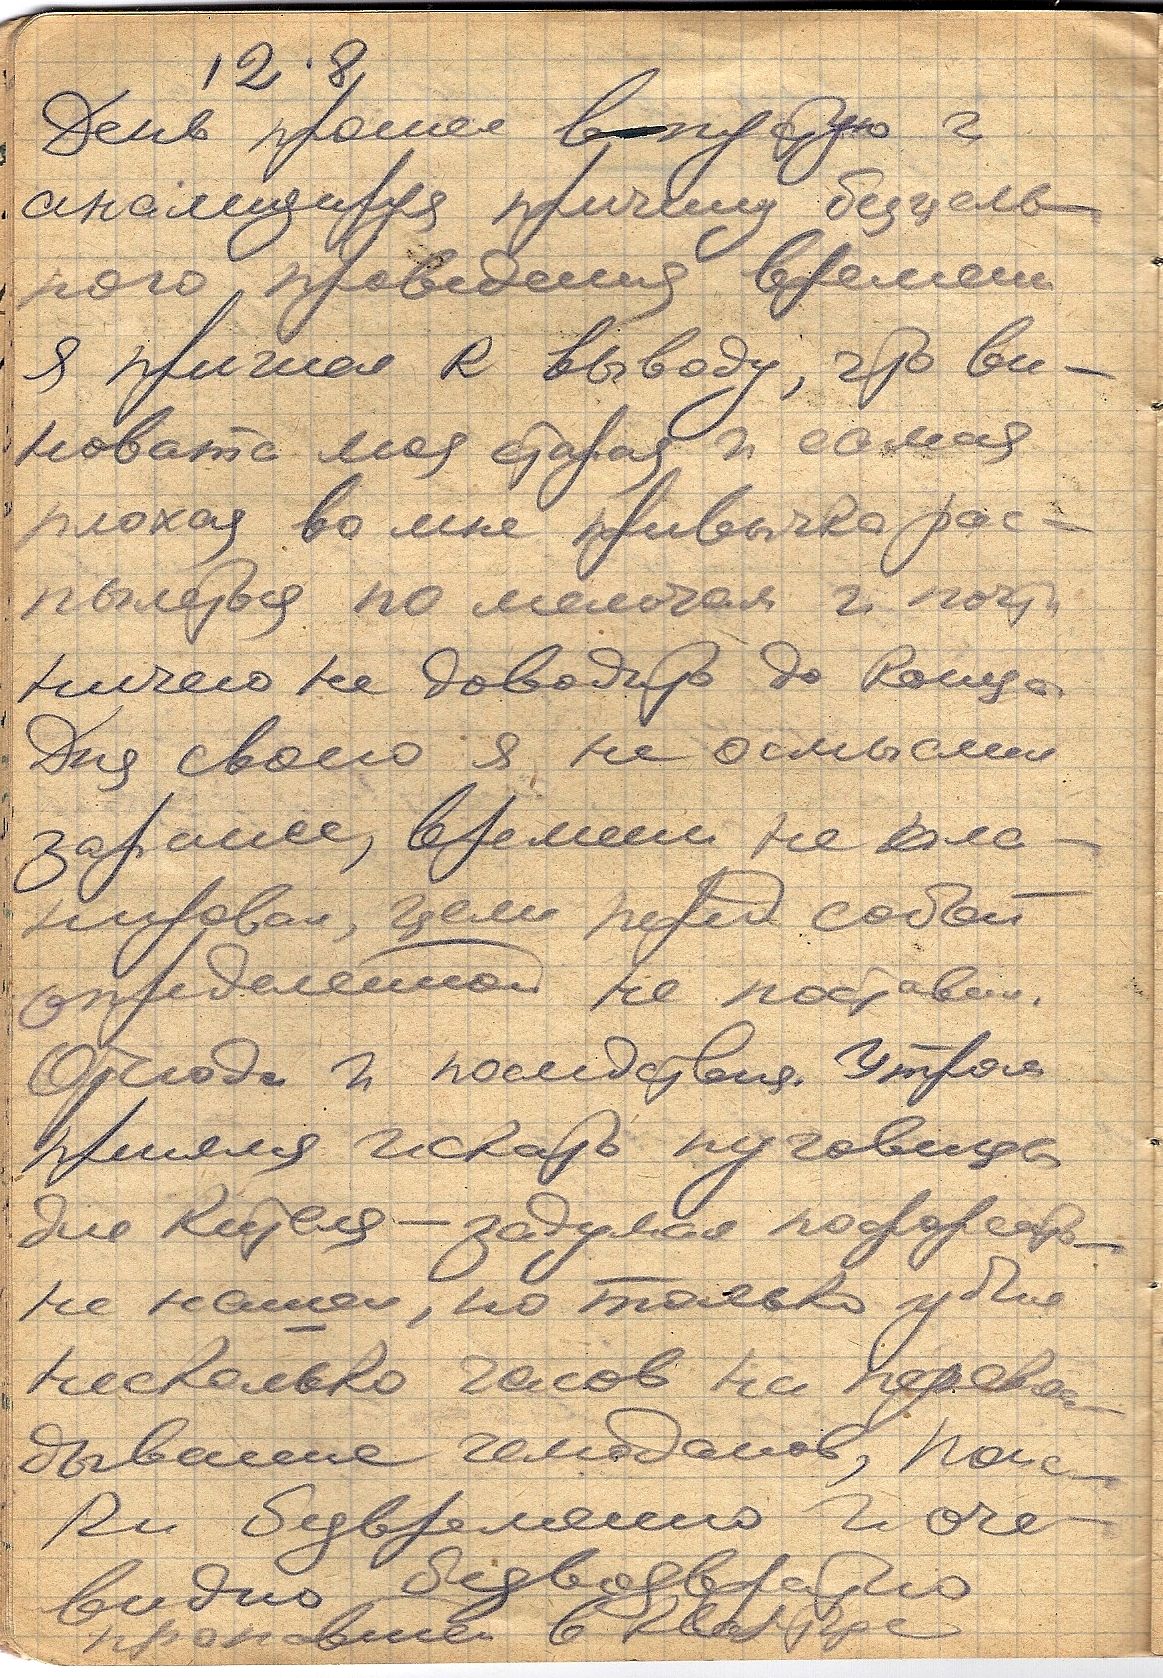 12.8
День прошел впустую и
анализируя причину бесцель-
ного проведения времени
я пришел к выводу, что ви-
новата моя старая и самая
плохая во мне привычка рас-
пыляться по мелочам и почти
ничего не доводить до конца
Дня своего я не осмыслил
заранее, времени не пла-
нировал, цели перед собой
определенной не поставил.
Отсюда и последствия. Утром
принялся искать пуговицы
для кителя — задумал пофорсить —
не нашел, но только убил
несколько часов на переки-
дывание чемоданов, поис-
ки безвременно и оче-
видно безвозвратно
пропавшей в квартире